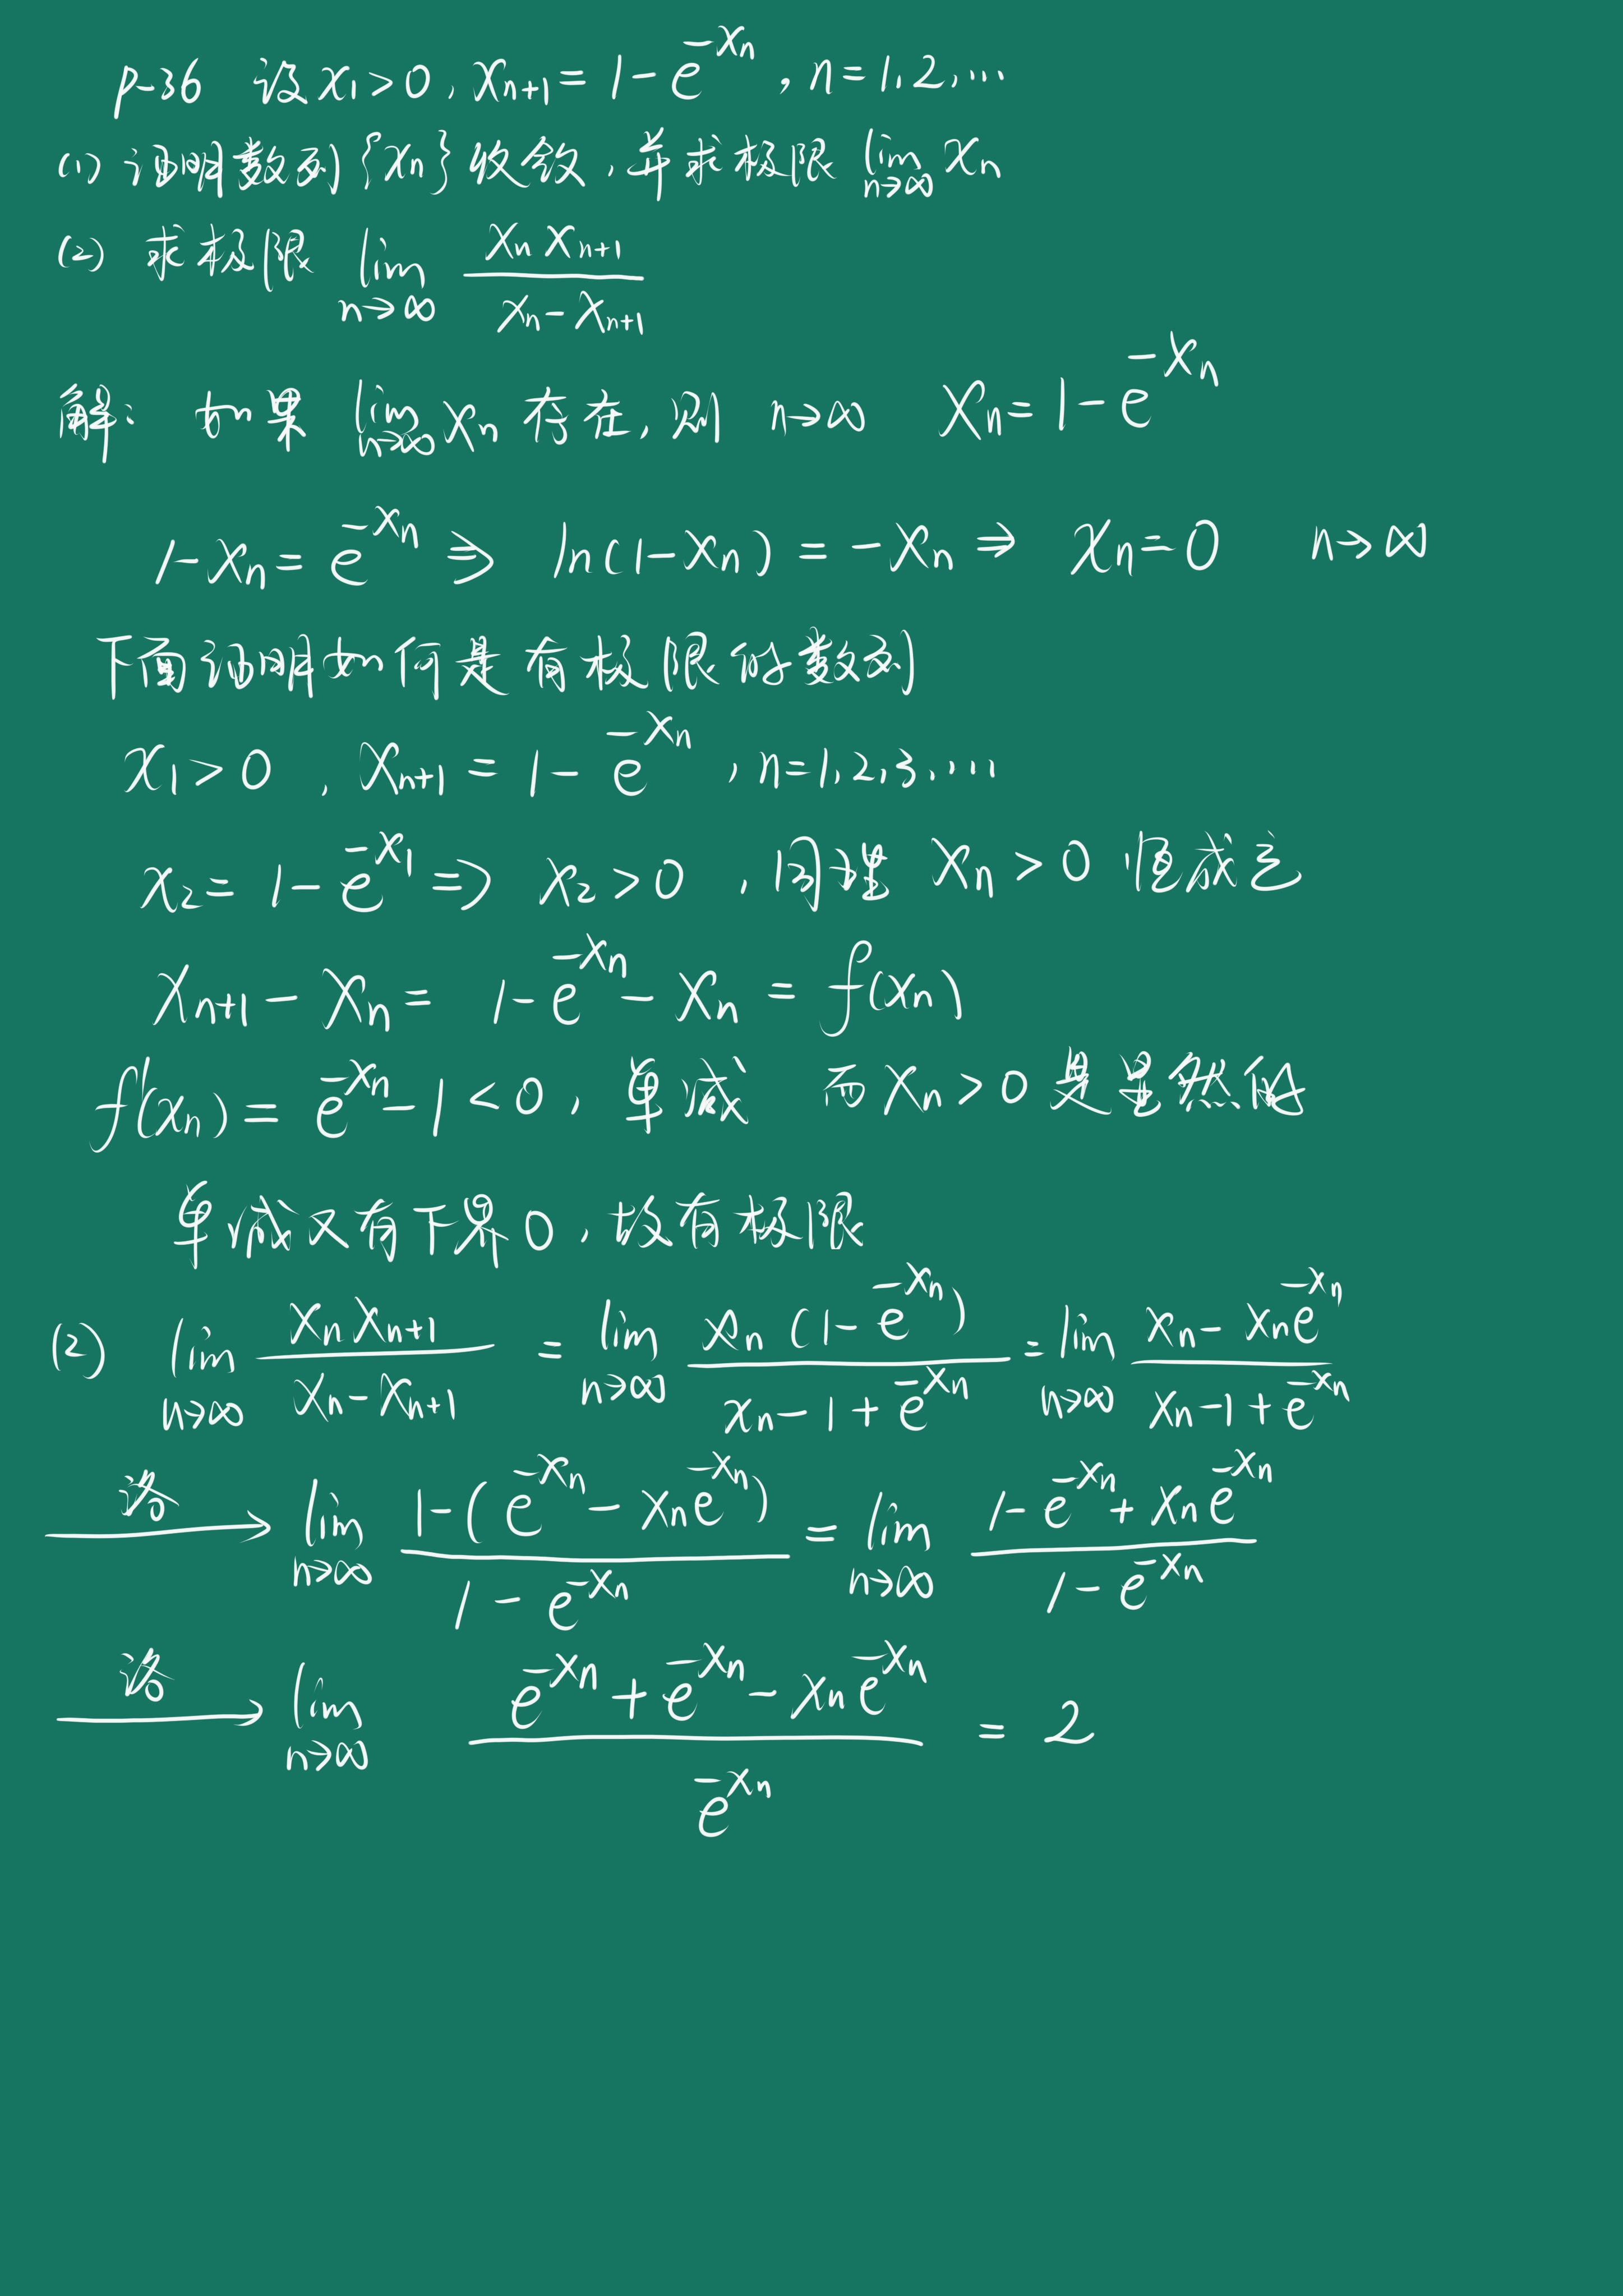 P-36 设 x₁>0, xₙ₊₁=1-e^{-xₙ}, n=1,2,…
(1) 证明数列{xₙ}收敛,并求极限 lim_{n→∞} xₙ
(2) 求极限 lim_{n→∞} \frac{xₙxₙ₊₁}{xₙ-xₙ₊₁}
解: 如果 lim_{n→∞} xₙ 存在,则 n→∞ xₙ=1-e^{-xₙ}
1-xₙ=e^{-xₙ} ⇒ ln(1-xₙ)=-xₙ ⇒ xₙ=0 n→∞
下面证明如何是有极限的数列
x₁>0, xₙ₊₁=1-e^{-xₙ}, n=1,2,3,…
x₂=1-e^{-x₁} ⇒ x₂>0, 同理 xₙ>0 恒成立
xₙ₊₁-xₙ=1-e^{-xₙ}-xₙ=f(xₙ)
f'(xₙ)=e^{-xₙ}-1<0, 单减 而xₙ>0是显然的
单减又有下界0,故有极限
(2) lim_{n→∞} \frac{xₙxₙ₊₁}{xₙ-xₙ₊₁} = lim_{n→∞} \frac{xₙ(1-e^{-xₙ})}{xₙ-1+e^{-xₙ}} = lim_{n→∞} \frac{xₙ-xₙe^{-xₙ}}{xₙ-1+e^{-xₙ}}
洛→ lim_{n→∞} \frac{1-(e^{-xₙ}-xₙe^{-xₙ})}{1-e^{-xₙ}} = lim_{n→∞} \frac{1-e^{-xₙ}+xₙe^{-xₙ}}{1-e^{-xₙ}}
洛→ lim_{n→∞} \frac{e^{-xₙ}+e^{-xₙ}-xₙe^{-xₙ}}{e^{-xₙ}} = 2